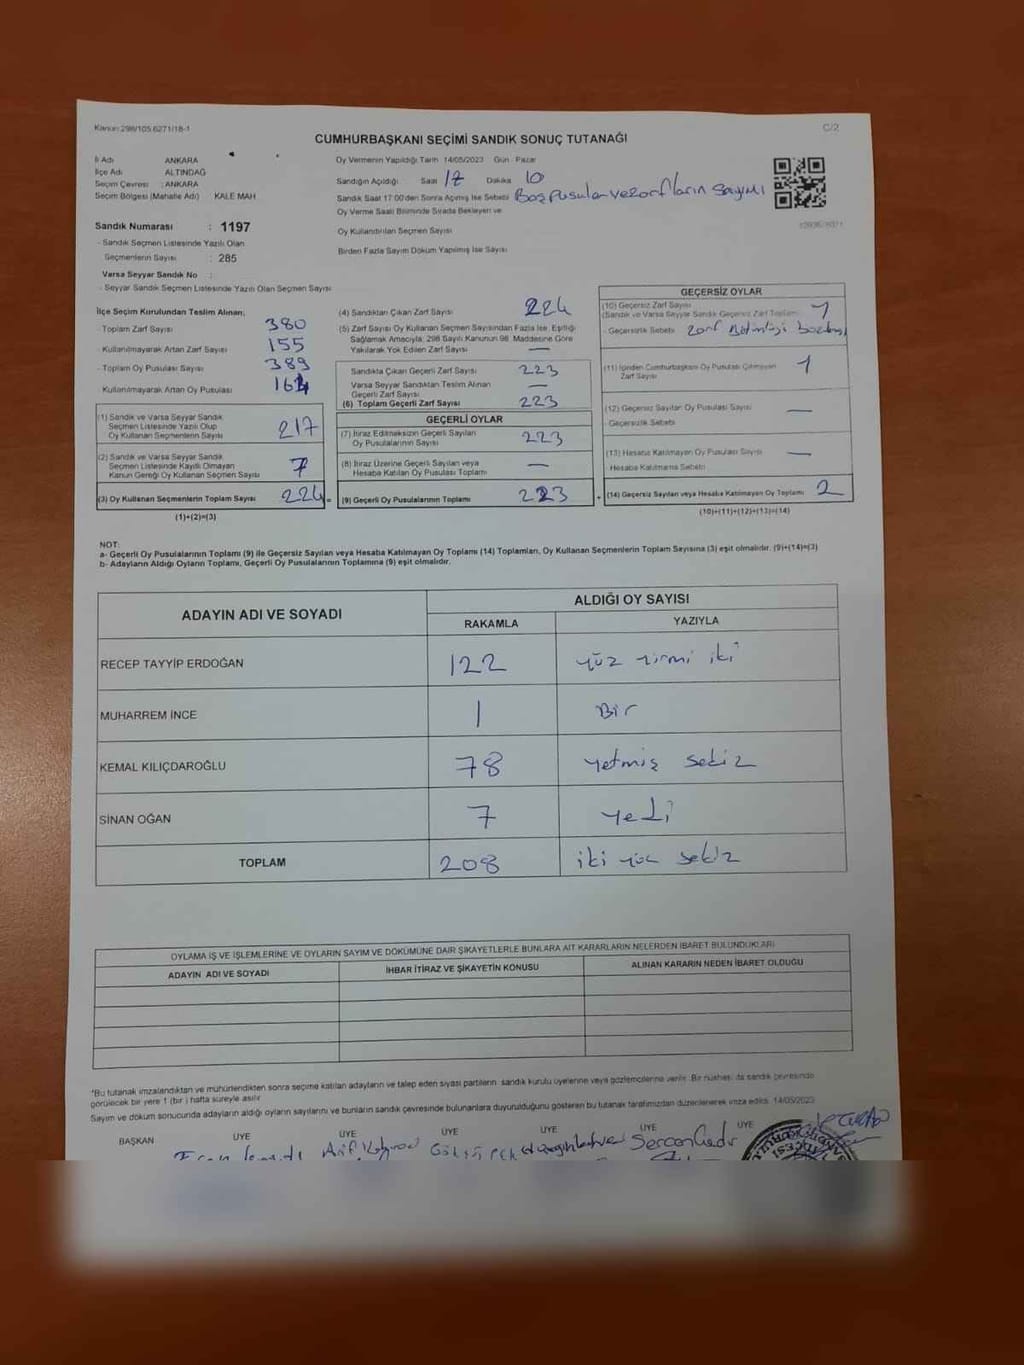 Kanun 298/105.6271/18-1
C/2
CUMHURBAŞKANI SEÇİMİ SANDIK SONUÇ TUTANAĞI
İl Adı ANKARA
İlçe Adı ALTINDAĞ
Seçim Çevresi : ANKARA
Seçim Bölgesi (Mahalle Adı) KALE MAH
Sandık Numarası : 1197
- Sandık Seçmen Listesinde Yazılı Olan
Seçmenlerin Sayısı : 285
Varsa Seyyar Sandık No :
- Seyyar Sandık Seçmen Listesinde Yazılı Olan Seçmen Sayısı
Oy Vermenin Yapıldığı Tarih 14/05/2023 Gün : Pazar
Sandığın Açıldığı Saat 17 Dakika 10
Sandık Saat 17:00'den Sonra Açılmış İse Sebebi Boş pusulan ve zarfların sayımı
Oy Verme Saati Bitiminde Sırada Bekleyen ve
Oy Kullandırılan Seçmen Sayısı
Birden Fazla Sayım Döküm Yapılmış İse Sayısı
İlçe Seçim Kurulundan Teslim Alınan;
- Toplam Zarf Sayısı 380
- Kullanılmayarak Artan Zarf Sayısı 155
- Toplam Oy Pusulası Sayısı 389
Kullanılmayarak Artan Oy Pusulası
(1) Sandık ve Varsa Seyyar Sandık
Seçmen Listesinde Yazılı Olup
Oy Kullanan Seçmenlerin Sayısı 217
(2) Sandık ve Varsa Seyyar Sandık
Seçmen Listesinde Kayıtlı Olmayan
Kanun Gereği Oy Kullanan Seçmen Sayısı 7
(3) Oy Kullanan Seçmenlerin Toplam Sayısı 224 =
(1)+(2)=(3)
(4) Sandıktan Çıkan Zarf Sayısı 224
(5) Zarf Sayısı Oy Kullanan Seçmen Sayısından Fazla İse, Eşitliği
Sağlamak Amacıyla, 298 Sayılı Kanunun 98. Maddesine Göre
Yakılarak Yok Edilen Zarf Sayısı —
Sandıkta Çıkan Geçerli Zarf Sayısı 223
Varsa Seyyar Sandıktan Teslim Alınan
Geçerli Zarf Sayısı —
(6) Toplam Geçerli Zarf Sayısı 223
GEÇERLİ OYLAR
(7) İtiraz Edilmeksizin Geçerli Sayılan
Oy Pusulalarının Sayısı 223
(8) İtiraz Üzerine Geçerli Sayılan veya
Hesaba Katılan Oy Pusulası Toplamı —
(9) Geçerli Oy Pusulalarının Toplamı 223 +
GEÇERSİZ OYLAR
(10) Geçersiz Zarf Sayısı
(Sandık ve Varsa Seyyar Sandık Geçersiz Zarf Toplamı) 1
- Geçersizlik Sebebi zarf Bütünlüğü bozulmuş
(11) İçinden Cumhurbaşkanı Oy Pusulası Çıkmayan
Zarf Sayısı 1
(12) Geçersiz Sayılan Oy Pusulası Sayısı —
- Geçersizlik Sebebi
(13) Hesaba Katılmayan Oy Pusulası Sayısı —
Hesaba Katılmama Sebebi
(14) Geçersiz Sayılan veya Hesaba Katılmayan Oy Toplamı 2
(10)+(11)+(12)+(13)=(14)
NOT:
a- Geçerli Oy Pusulalarının Toplamı (9) ile Geçersiz Sayılan veya Hesaba Katılmayan Oy Toplamı (14) Toplamları, Oy Kullanan Seçmenlerin Toplam Sayısına (3) eşit olmalıdır. (9)+(14)=(3)
b- Adayların Aldığı Oyların Toplamı, Geçerli Oy Pusulalarının Toplamına (9) eşit olmalıdır.
ADAYIN ADI VE SOYADI
ALDIĞI OY SAYISI
RAKAMLA YAZIYLA
RECEP TAYYİP ERDOĞAN 122 yüz yirmi iki
MUHARREM İNCE 1 Bir
KEMAL KILIÇDAROĞLU 78 yetmiş sekiz
SİNAN OĞAN 7 yedi
TOPLAM 208 iki yüz sekiz
OYLAMA İŞ VE İŞLEMLERİNE VE OYLARIN SAYIM VE DÖKÜMÜNE DAİR ŞİKAYETLERLE BUNLARA AİT KARARLARIN NELERDEN İBARET BULUNDUKLARI
ADAYIN ADI VE SOYADI İHBAR İTİRAZ VE ŞİKAYETİN KONUSU ALINAN KARARIN NEDEN İBARET OLDUĞU
*Bu tutanak imzalandıktan ve mühürlendikten sonra seçime katılan adayların ve talep eden siyasi partilerin sandık kurulu üyelerine veya gözlemcilerine verilir. Bir nüshası da sandık çevresinde
görülecek bir yere 1 (bir) hafta süreyle asılır
Sayım ve döküm sonucunda adayların aldığı oyların sayılarını ve bunların sandık çevresinde bulunanlara duyurulduğunu gösteren bu tutanak tarafımızdan düzenlenerek imza edildi. 14/05/2023
BAŞKAN ÜYE ÜYE ÜYE ÜYE ÜYE ÜYE